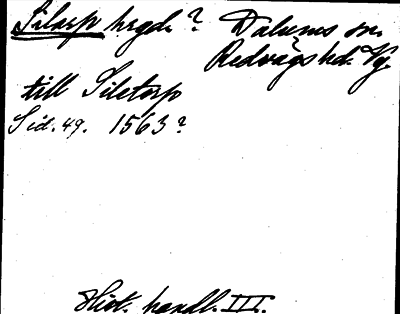 Silarp hrgd? Dalums sn.
Redvägs hd. Vg.
till Siletorp
Sid. 49. 1563?
Hist. handl. III.